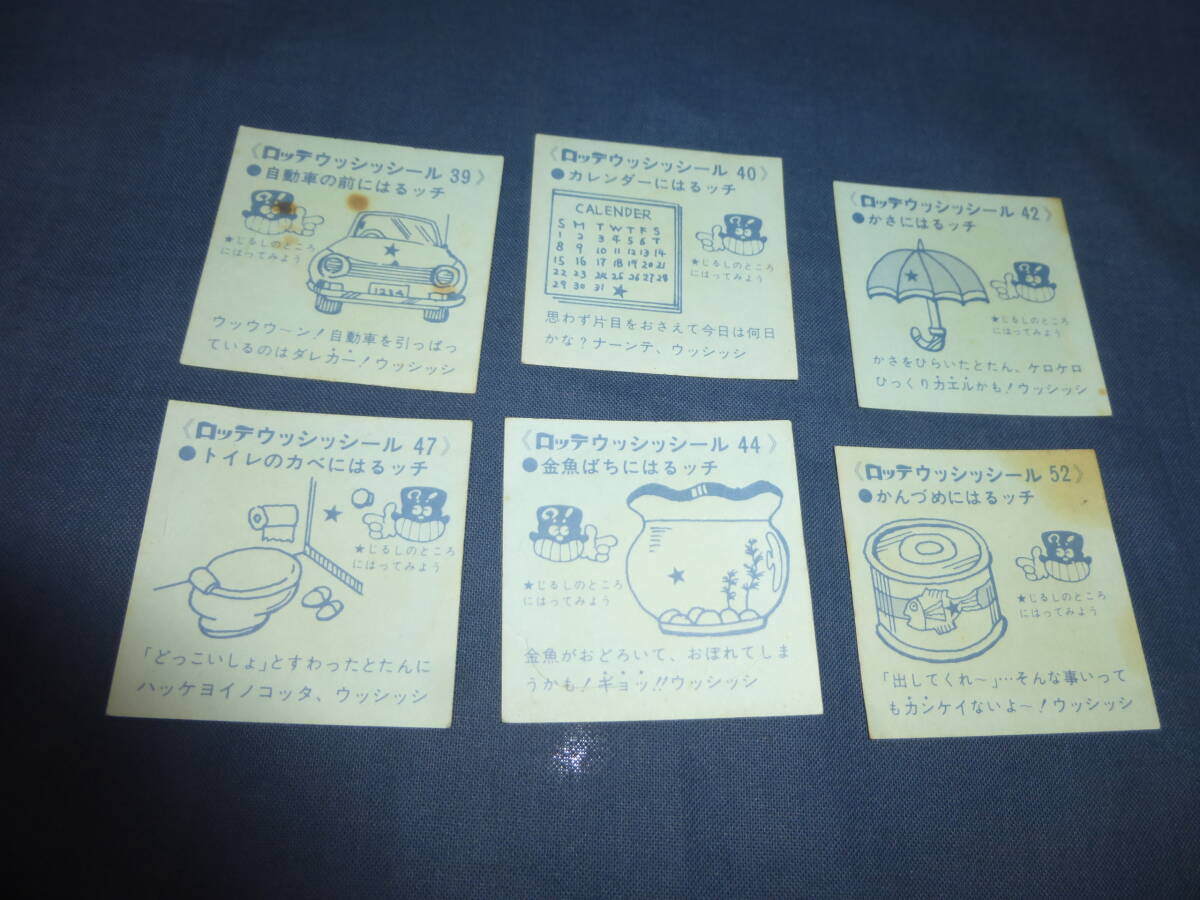 《ロッテウッシッシール 39》
●自動車の前にはるッチ
?!
★じるしのところ
にはってみよう
1234
ウッウウ〜ン!自動車を引っぱっ
ているのはダレカー!ウッシッシ
《ロッテウッシッシール 40》
●カレンダーにはるッチ
CALENDER
S M T W T F S
1 2 3 4 5 6 7
8 9 10 11 12 13 14
15 16 17 18 19 20 21
22 23 24 25 26 27 28
29 30 31 ★
?!
★じるしのところ
にはってみよう
思わず片目をおさえて今日は何日
かな?ナーンテ、ウッシッシ
《ロッテウッシッシール 42》
●かさにはるッチ
?!
★じるしのところ
にはってみよう
かさをひらいたとたん、ケロケロ
ひっくりカエルかも!ウッシッシ
《ロッテウッシッシール 47》
●トイレのカベにはるッチ
?!
★じるしのところ
にはってみよう
「どっこいしょ」とすわったとたんに
ハッケヨイノコッタ、ウッシッシ
《ロッテウッシッシール 44》
●金魚ばちにはるッチ
?!
★じるしのところ
にはってみよう
金魚がおどろいて、おぼれてしま
うかも!ギョッ!!ウッシッシ
《ロッテウッシッシール 52》
●かんづめにはるッチ
?!
★じるしのところ
にはってみよう
「出してくれ〜」…そんな事いって
もカンケイないよ〜!ウッシッシ